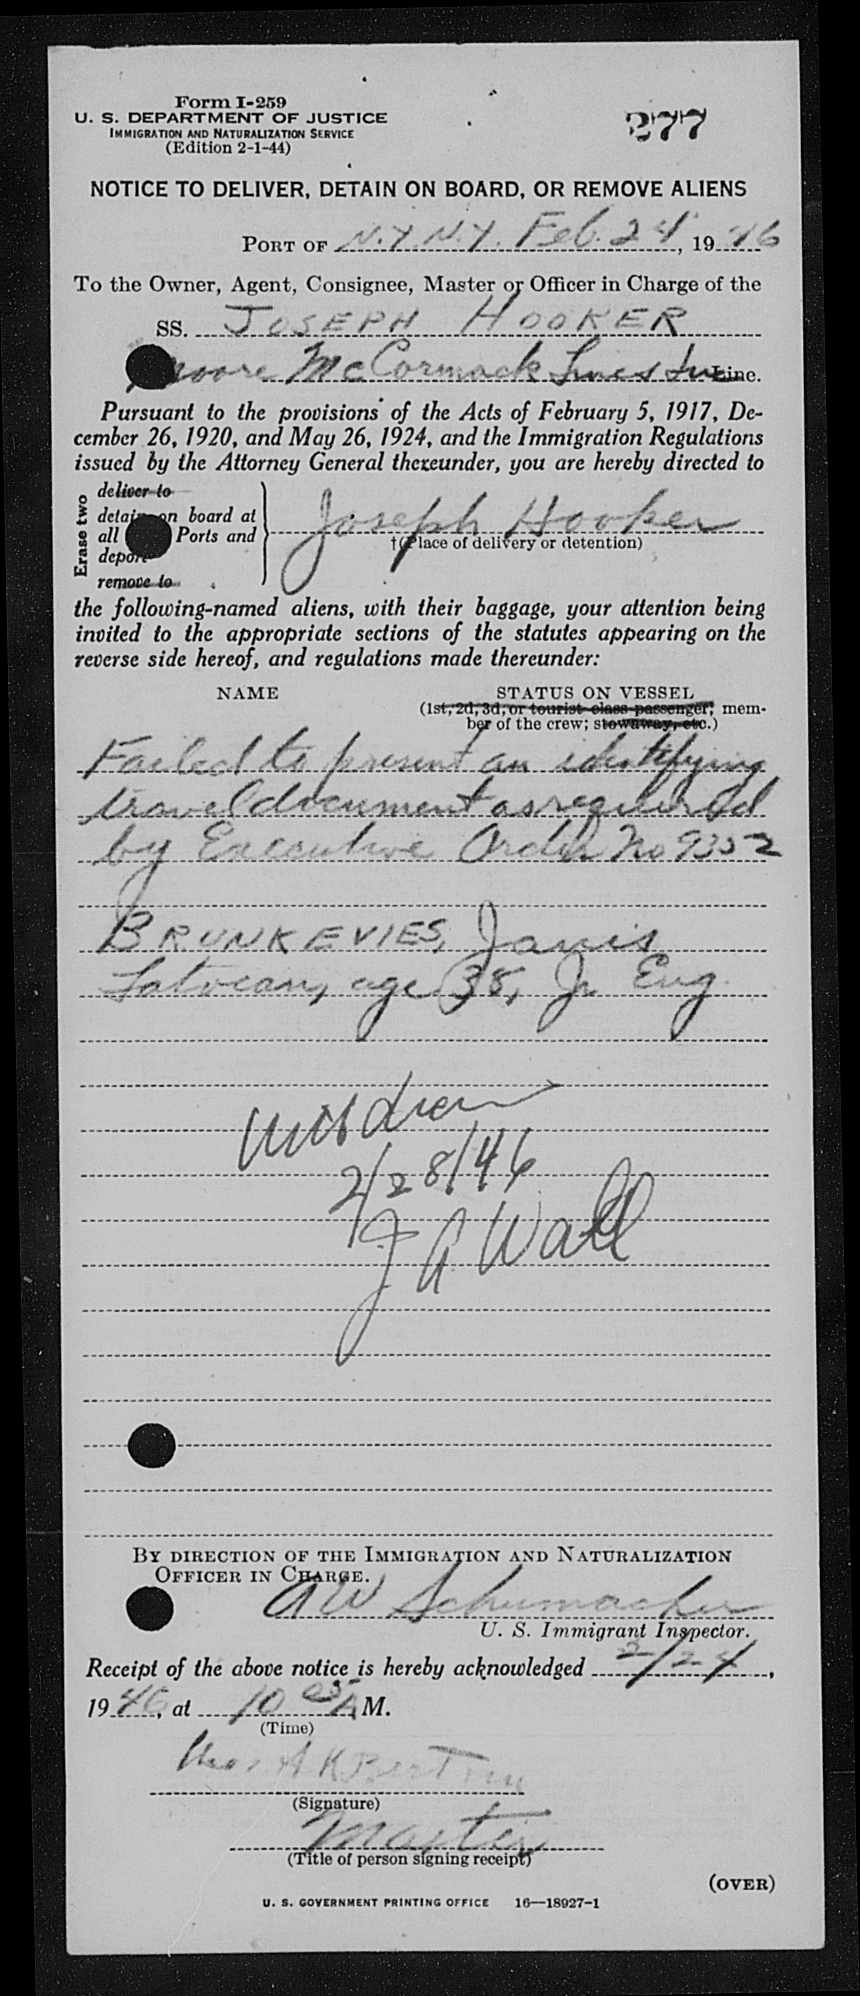 Form I-259
U. S. DEPARTMENT OF JUSTICE
IMMIGRATION AND NATURALIZATION SERVICE
(Edition 2-1-44)
277
NOTICE TO DELIVER, DETAIN ON BOARD, OR REMOVE ALIENS
PORT OF N.Y. N.Y. Feb. 24, 1946
To the Owner, Agent, Consignee, Master or Officer in Charge of the
SS. JOSEPH HOOKER
Moore McCormack Lines Inc Line.
Pursuant to the provisions of the Acts of February 5, 1917, De-
cember 26, 1920, and May 26, 1924, and the Immigration Regulations
issued by the Attorney General thereunder, you are hereby directed to
Erase two
deliver to
detain on board at
all Ports and
deport
remove to
Joseph Hooker
†(Place of delivery or detention)
the following-named aliens, with their baggage, your attention being
invited to the appropriate sections of the statutes appearing on the
reverse side hereof, and regulations made thereunder:
NAME STATUS ON VESSEL
(1st, 2d, 3d, or tourist class passenger; mem-
ber of the crew; stowaway, etc.)
Failed to present an identifying
travel document as required
by Executive Order No 9352
BRUNKEVIES, Janis
Latvian, age 38, Jr Eng.
Withdrawn
2/28/46
J A Wall
BY DIRECTION OF THE IMMIGRATION AND NATURALIZATION
OFFICER IN CHARGE.
A W Schumacher
U. S. Immigrant Inspector.
Receipt of the above notice is hereby acknowledged 2/24,
1946, at 10 05 A M.
(Time)
(Signature)
Master
(Title of person signing receipt)
(OVER)
U. S. GOVERNMENT PRINTING OFFICE 16—18927-1